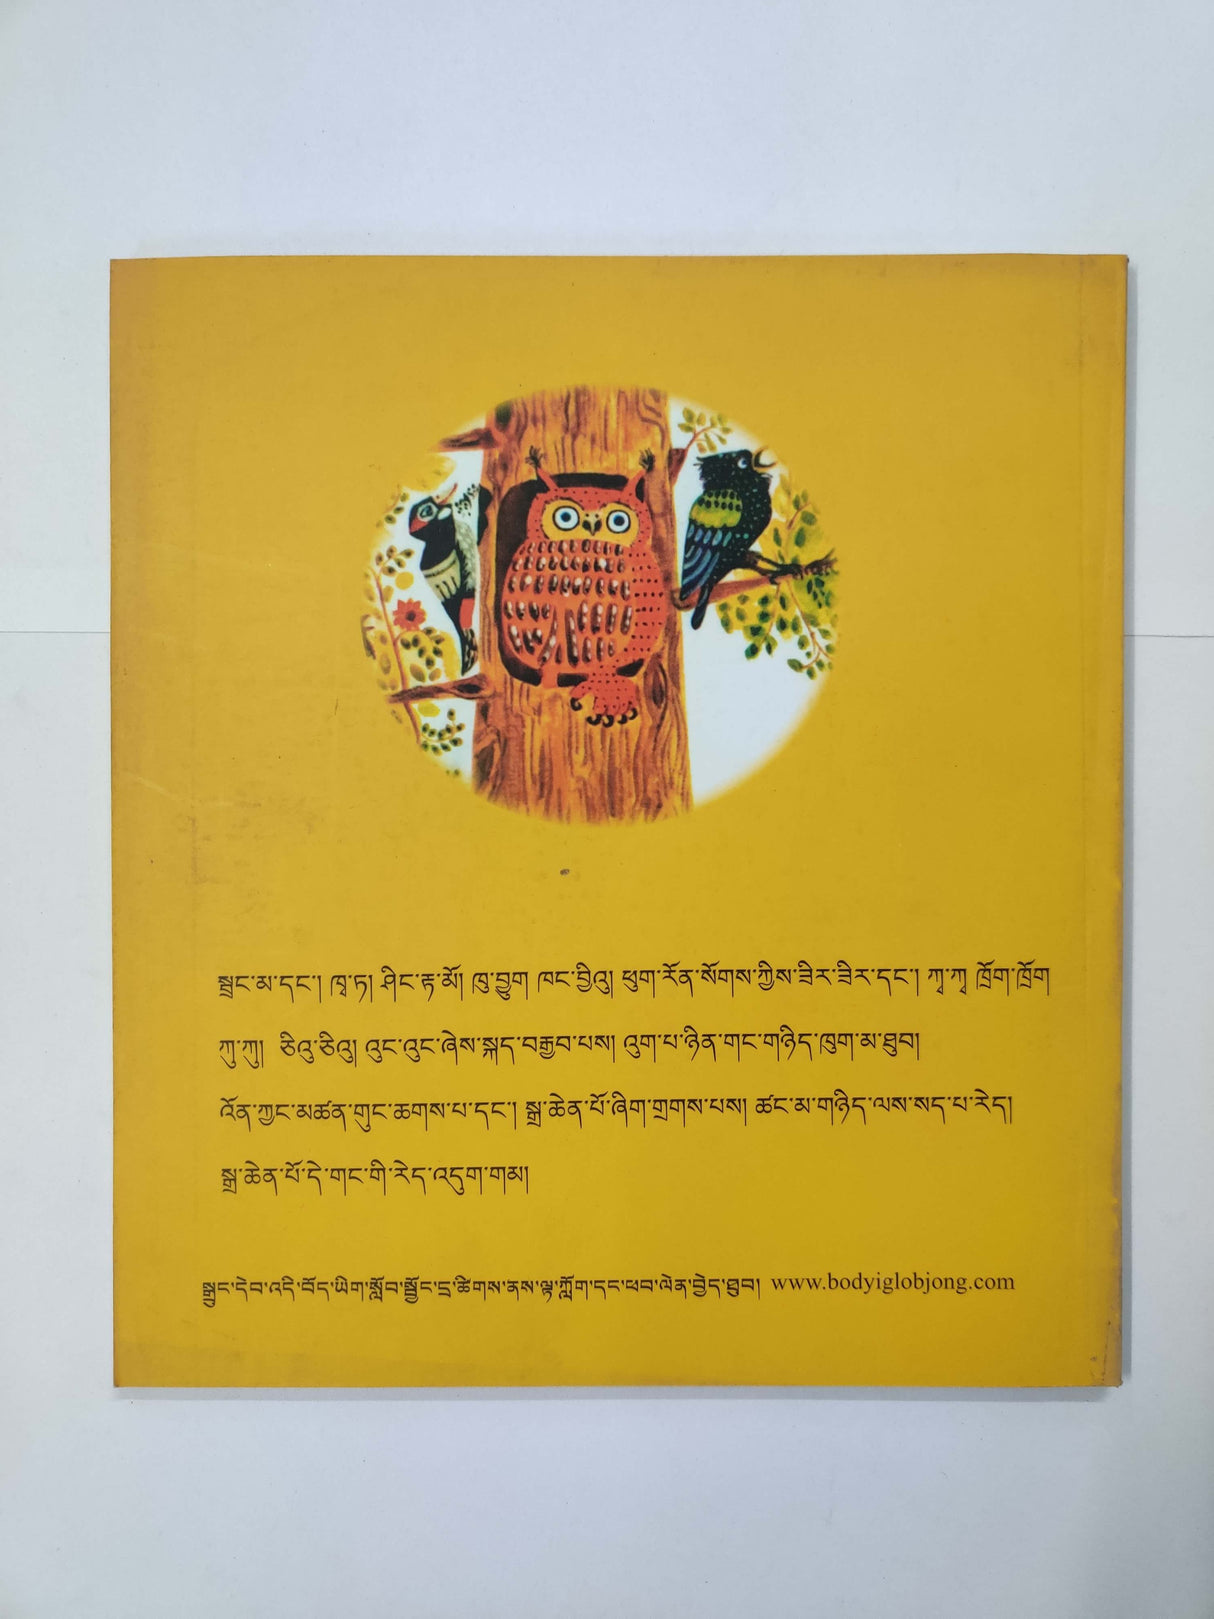 སྦྲང་མ་དང་། ཁྭ་ཏ། ཤིང་རྟ་མོ། ཁུ་བྱུག ཁང་བྱིའུ། ཕུག་རོན་སོགས་ཀྱིས་ཟིར་ཟིར་དང་། ཀྭ་ཀྭ ཁྲོག་ཁྲོག
ཀུ་ཀུ། ཅིའུ་ཅིའུ། འུང་འུང་ཞེས་སྐད་བརྒྱབ་པས། འུག་པ་ཉིན་གང་གཉིད་ཁུག་མ་ཐུབ།
འོན་ཀྱང་མཚན་གུང་ཆགས་པ་དང་། སྒྲ་ཆེན་པོ་ཞིག་གྲགས་པས། ཚང་མ་གཉིད་ལས་སད་པ་རེད།
སྒྲ་ཆེན་པོ་དེ་གང་གི་རེད་འདུག་གམ།
སྒྲུང་དེབ་འདི་བོད་ཡིག་སློབ་སྦྱོང་དྲ་ཚིགས་ནས་ལྟ་ཀློག་དང་ཕབ་ལེན་བྱེད་ཐུབ། www.bodyiglobjong.com